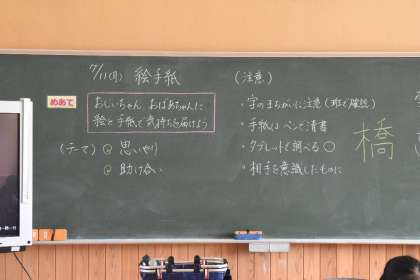 7/11(月) 絵手紙
めあて
おじいちゃん、おばあちゃんに
絵と手紙で気持ちを届けよう
(テーマ) @ 思いやり
@ 助け合い
(注意)
・字のまちがいに注意(班で確認)
・手紙はペンで清書
・タブレットで調べる○
・相手を意識したものに
橋